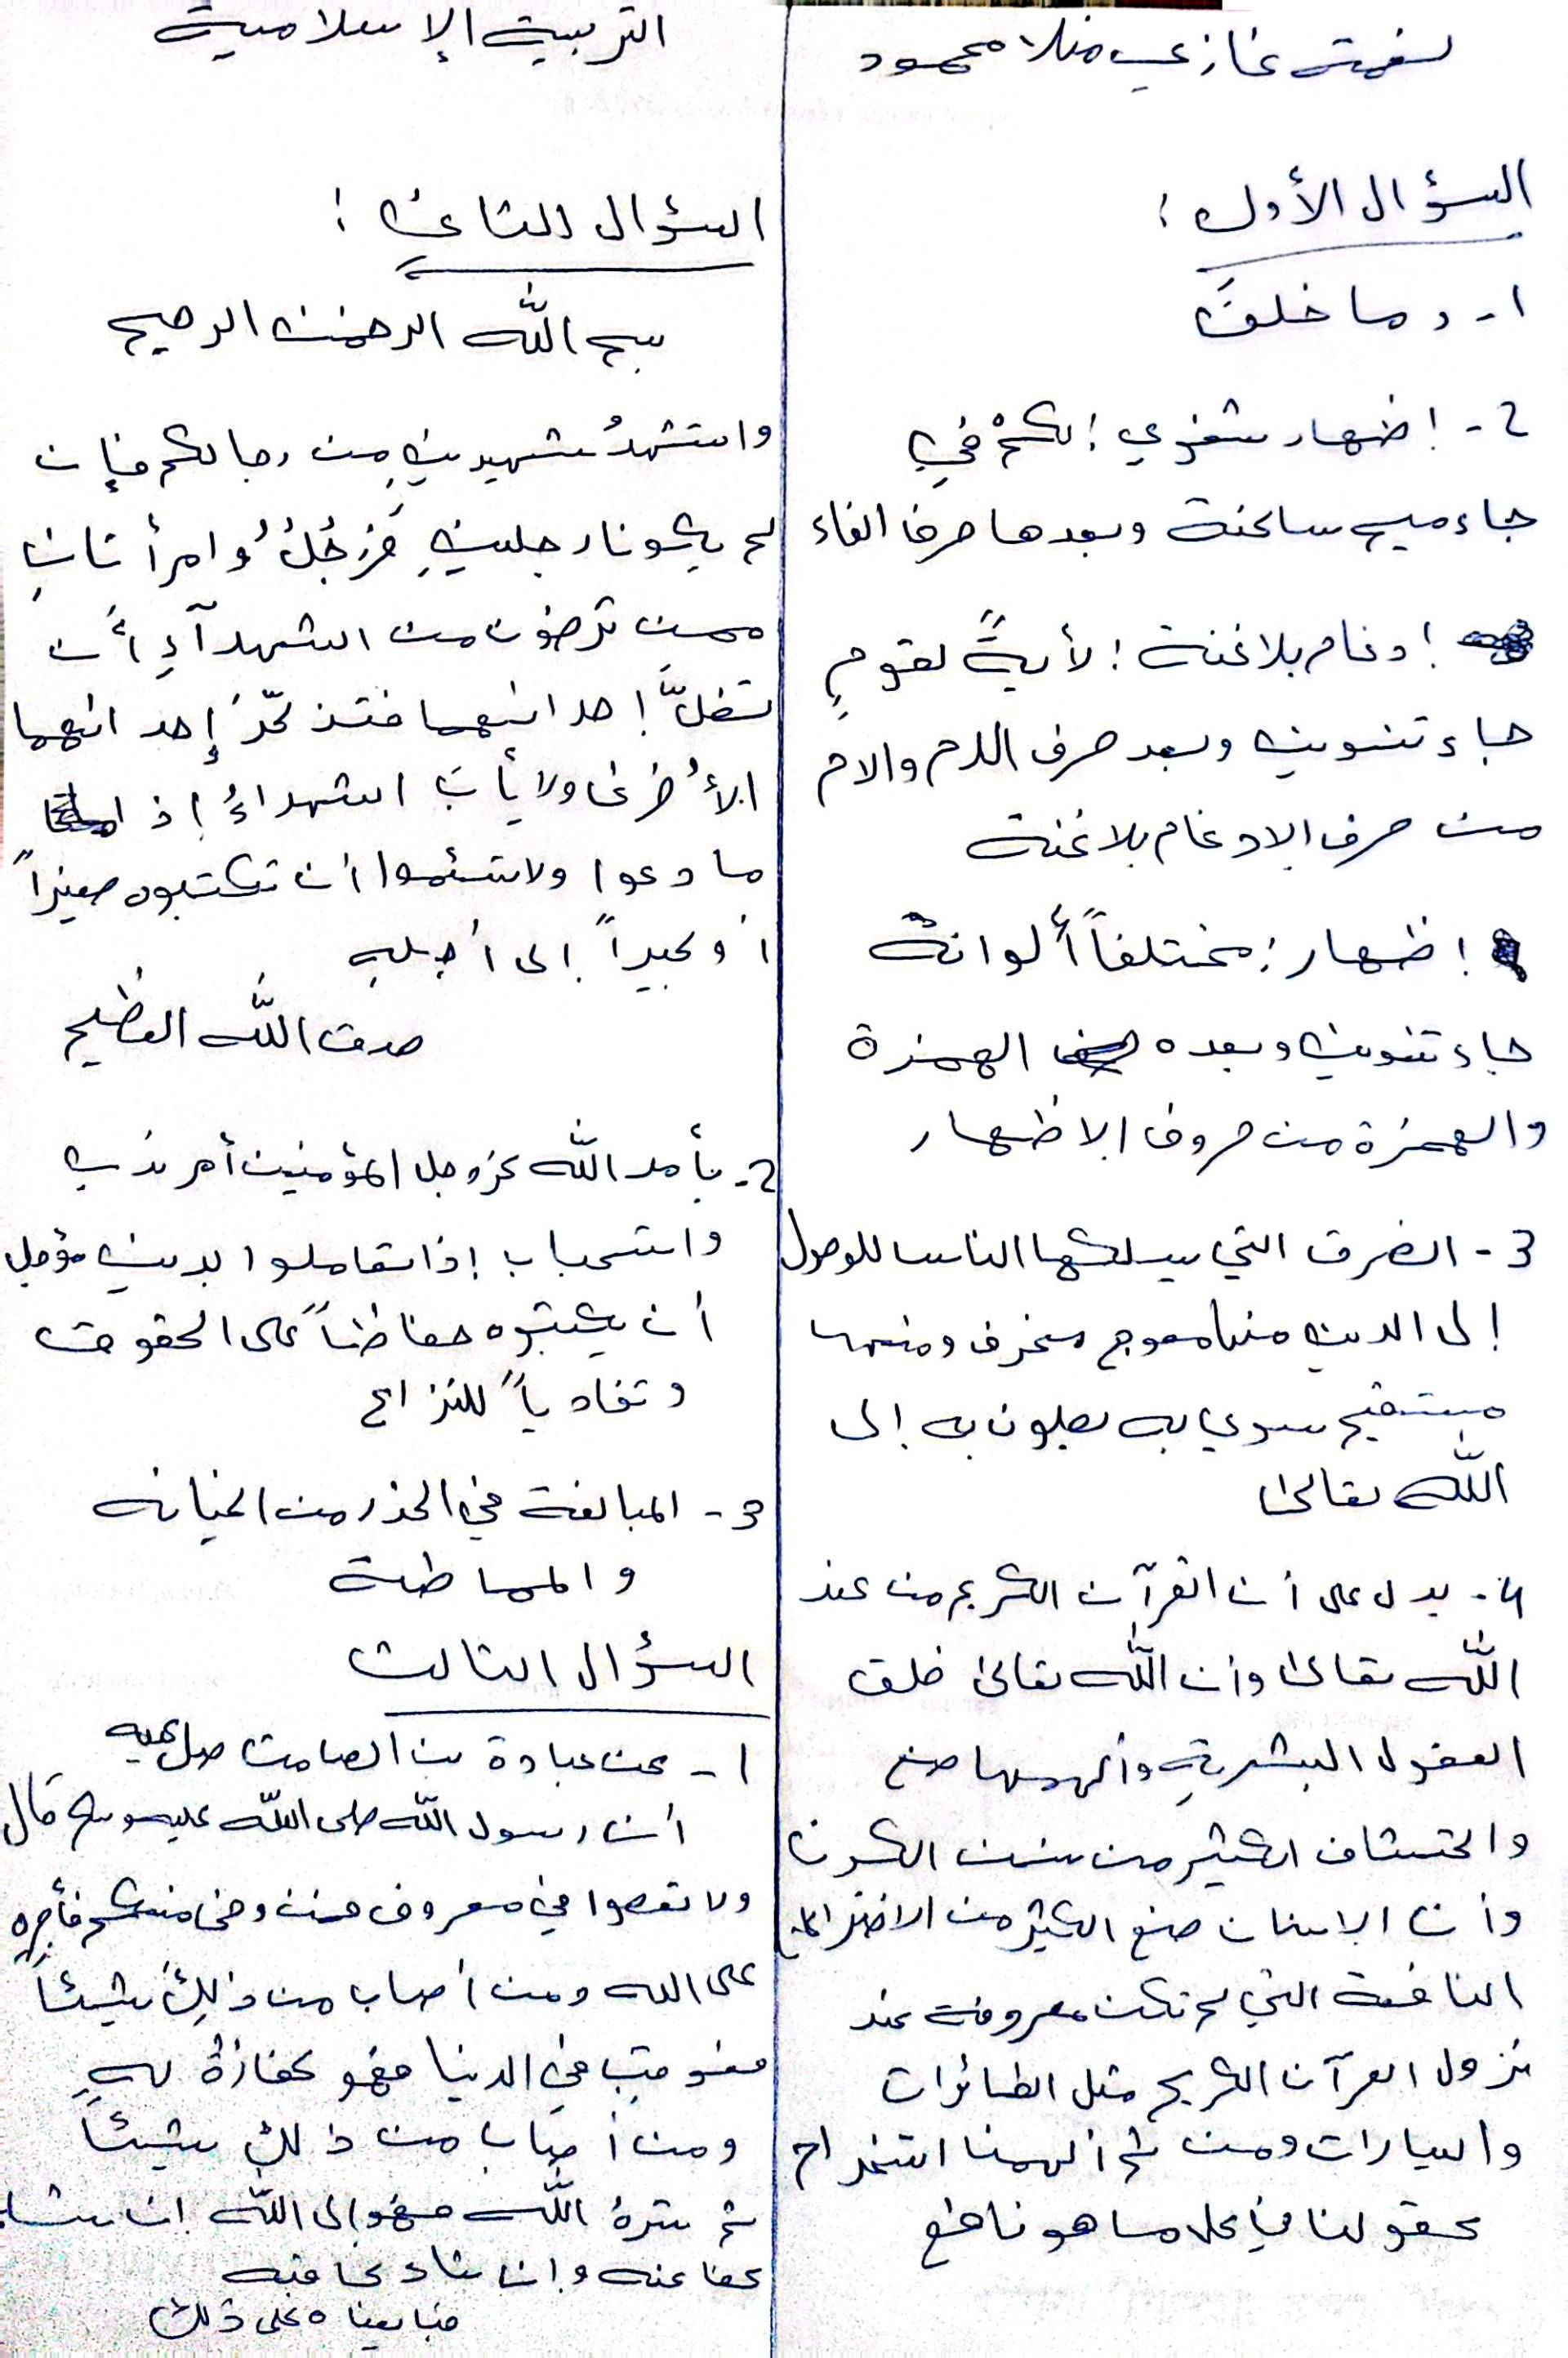 غازي منلا محمود
السؤال الأول :
1- وما خلقَ
2- إظهار شفوي : لكمْ في
جاء ميم ساكنة وبعدها حرف الفاء
إدغام بلا غنة : لأيةً لقومٍ
جاء تنوين وبعد حرف اللام والام
من حرف الادغام بلا غنة
إظهار : مختلفاً ألوانهُ
جاء تنوين وبعده الهمزة
والهمزة من حروف الاظهار
3- الطرق التي يسلكها الناس للوصول
إلى الدين منها معوج منحرف ومنها
مستقيم سوي به يصلون به إلى
اللّٰه تعالى
4- يدل على أن القرآن الكريم من عند
اللّٰه تعالى وأن اللّٰه تعالى خلق
العقول البشريةِ وألهمها صنع
واكتشاف الكثير من سنن الكون
وأن الانسان صنع الكثير من الاختراعات
النافعة التي لم تكن معروفة عند
نزول القرآن الكريم مثل الطائرات
والسيارات ومن ثم ألهمنا استخدام
عقولنا في كل ما هو نافع
التربية الإسلامية
السؤال الثاني :
بسم اللّٰه الرحمن الرحيم
واستشهدُ شهيدين من رجالكم فإن
لم يكونا رجلينِ فَرَجُلٌ وامرأتانِ
ممن ترضون من الشهدآءِ أن
تضلَّ إحدائهما فتذكّرَ إحدائهما
الأُخرى ولا يأبَ الشهداءُ إذا
ما دعوا ولا تسئموا أن تكتبوه صغيراً
أو كبيراً إلى أجلهِ
صدق اللّٰه العظيم
2- يأمر اللّٰه عز وجل المؤمنين أمر ندب
واستحباب إذا تعاملوا بدين مؤجل
أن يكتبوه حفاظاً على الحقوق
وتفادياً للنزاع
3- المبالغة في الحذر من الخيانه
والمماطة
السؤال الثالث
1- عن عبادة بن الصامت صل عليه
أن رسول اللّٰه صلى اللّٰه عليه وسلم قال
ولا تعصوا في معروف فمن وفى منكم فأجره
على الله ومن أصاب من ذلِكَ شيئاً
فعوقب في الدنيا فهو كفارةٌ لهِ
ومن أصاب من ذلك شيئاً
ثم سترهُ اللّٰه فهو إلى اللّٰه إن شاء
عفا عنه وإن شاء عاقبه
فبايعناه على ذلك